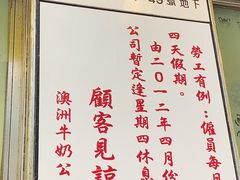 號地下
勞工有例：僱員每月
四天假期。
由二〇一二年四月份
公司暫定逢星期四休息
顧客見諒
澳洲牛奶公